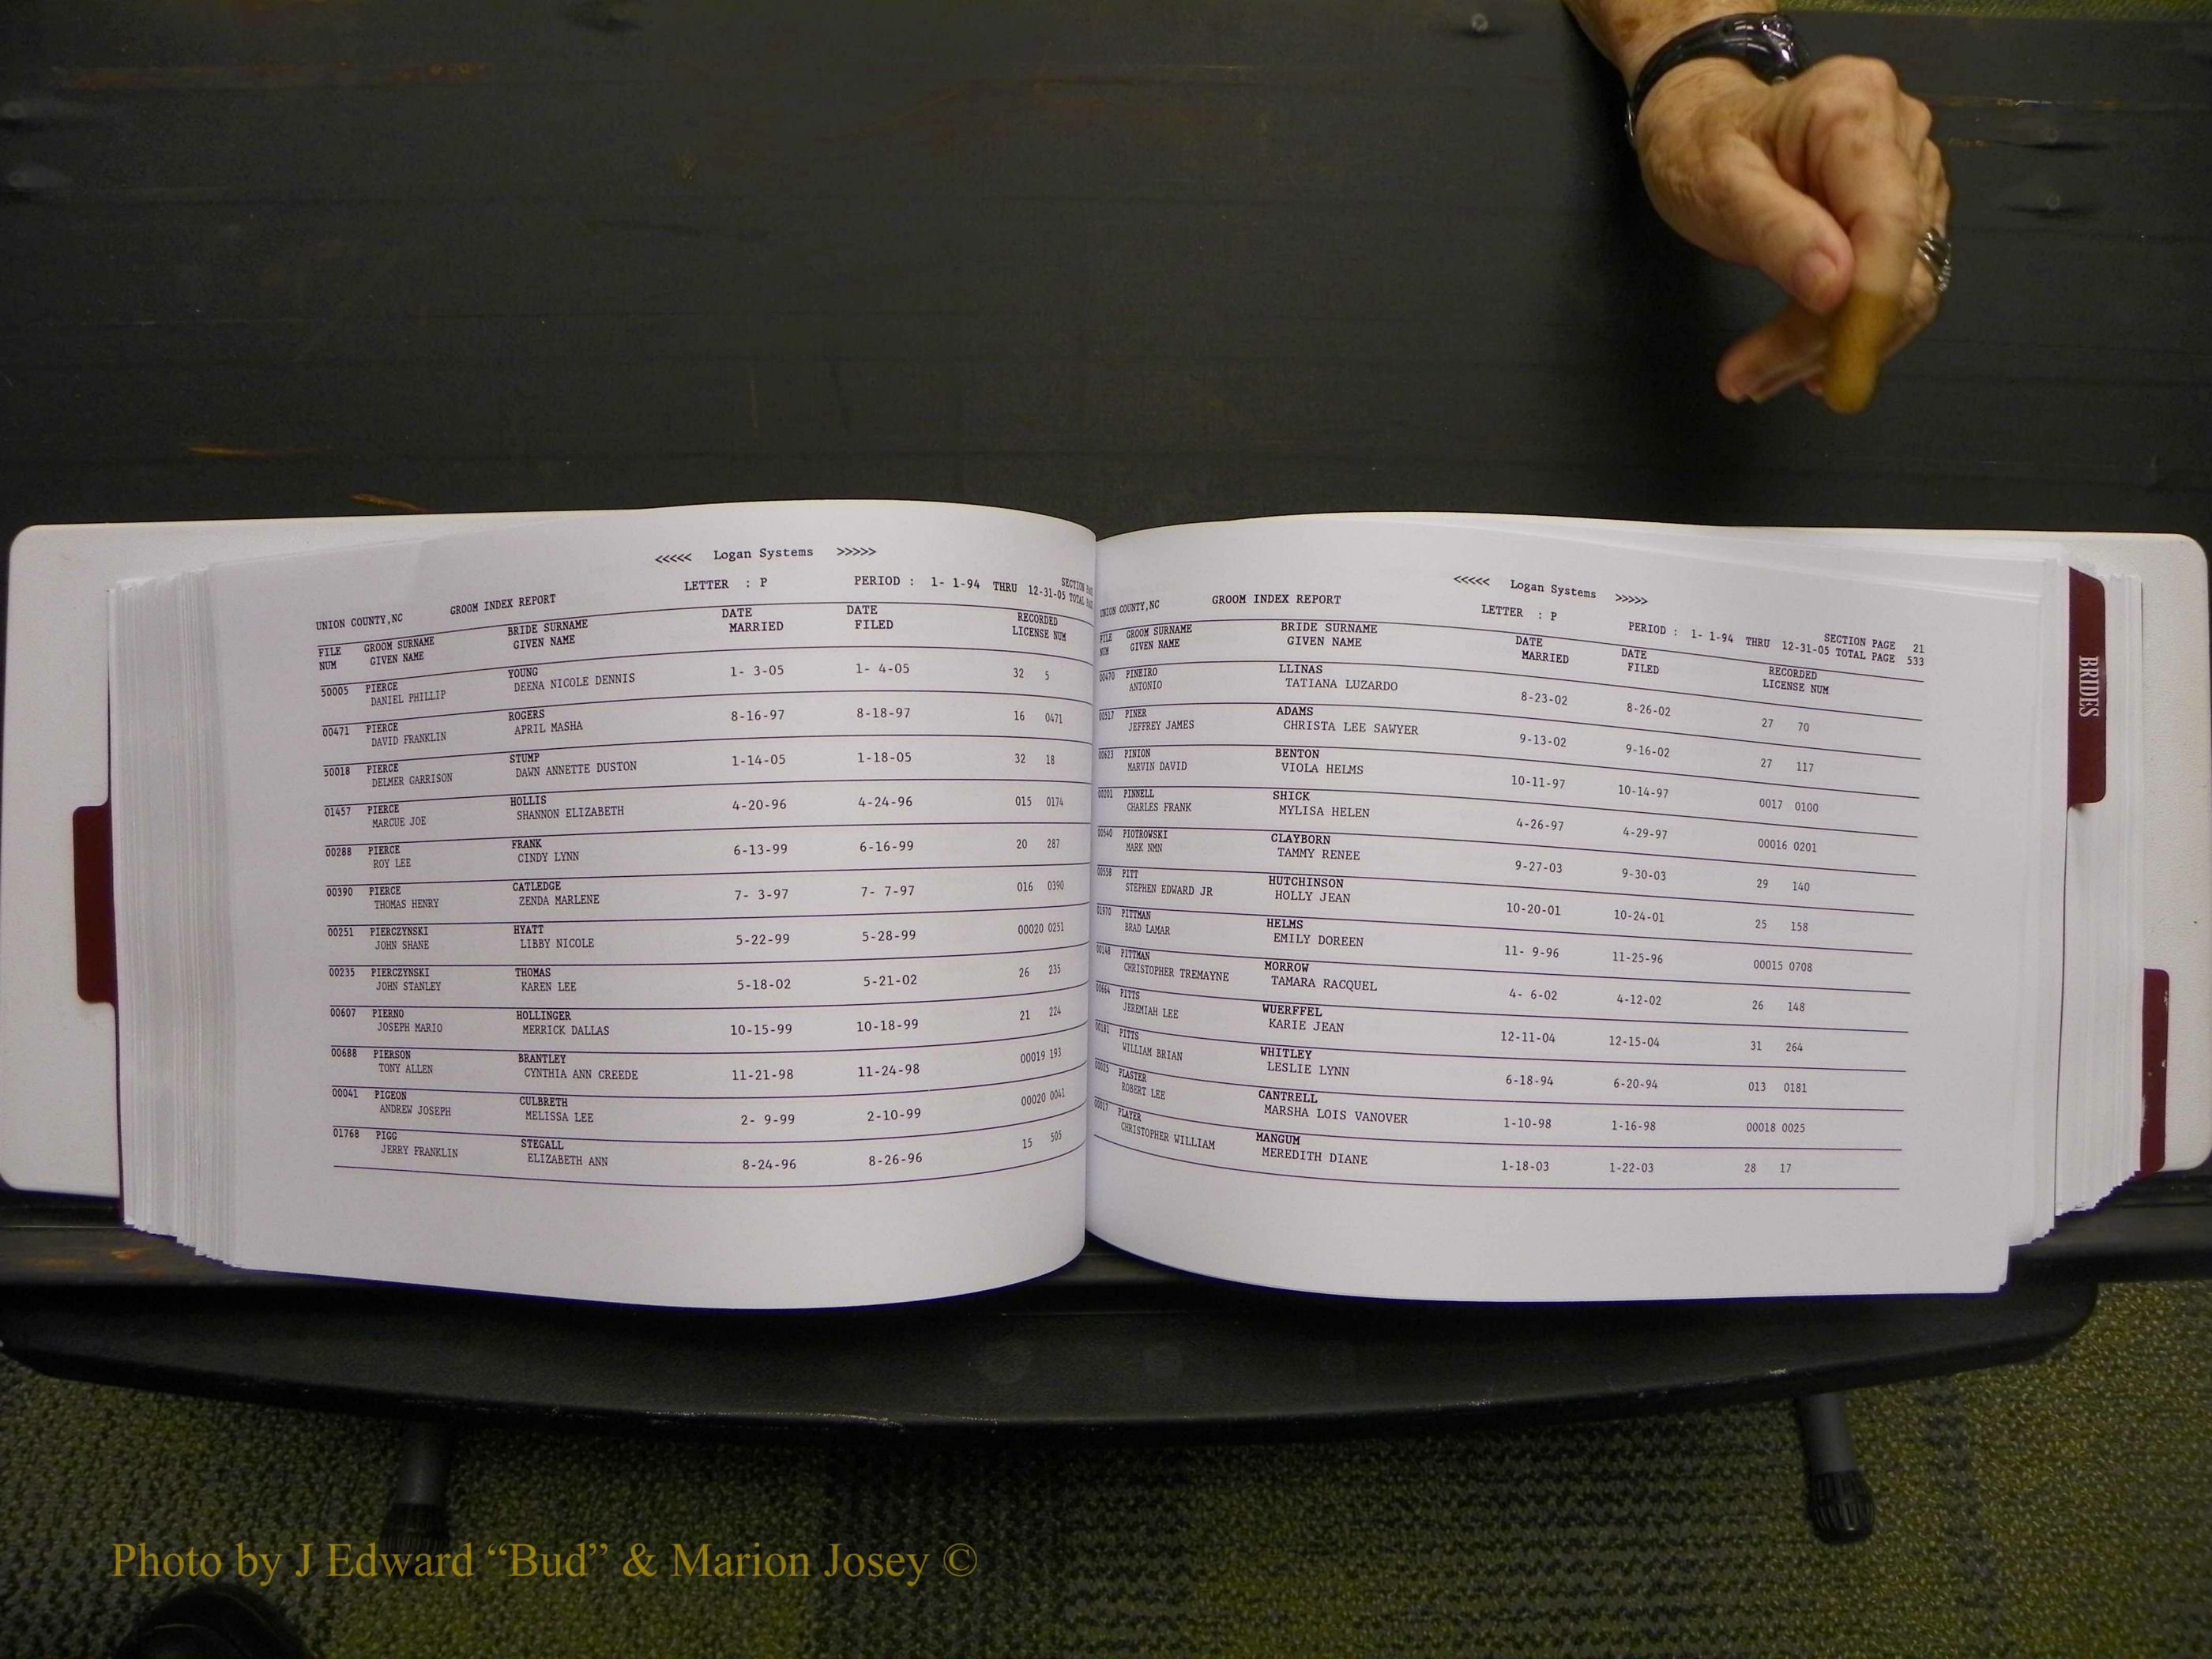 <<<<< Logan Systems >>>>>
UNION COUNTY,NC GROOM INDEX REPORT LETTER : P PERIOD : 1- 1-94 THRU 12-31-05 SECTION TOTAL
FILE NUM GROOM SURNAME GIVEN NAME BRIDE SURNAME GIVEN NAME DATE MARRIED DATE FILED RECORDED LICENSE NUM
50005 PIERCE YOUNG
DANIEL PHILLIP DEENA NICOLE DENNIS 1- 3-05 1- 4-05 32 5
00471 PIERCE ROGERS
DAVID FRANKLIN APRIL MASHA 8-16-97 8-18-97 16 0471
50018 PIERCE STUMP
DELMER GARRISON DAWN ANNETTE DUSTON 1-14-05 1-18-05 32 18
01457 PIERCE HOLLIS
MARCUE JOE SHANNON ELIZABETH 4-20-96 4-24-96 015 0174
00288 PIERCE FRANK
ROY LEE CINDY LYNN 6-13-99 6-16-99 20 287
00390 PIERCE CATLEDGE
THOMAS HENRY ZENDA MARLENE 7- 3-97 7- 7-97 016 0390
00251 PIERCZYNSKI HYATT
JOHN SHANE LIBBY NICOLE 5-22-99 5-28-99 00020 0251
00235 PIERCZYNSKI THOMAS
JOHN STANLEY KAREN LEE 5-18-02 5-21-02 26 235
00607 PIERNO HOLLINGER
JOSEPH MARIO MERRICK DALLAS 10-15-99 10-18-99 21 224
00688 PIERSON BRANTLEY
TONY ALLEN CYNTHIA ANN CREEDE 11-21-98 11-24-98 00019 193
00041 PIGEON CULBRETH
ANDREW JOSEPH MELISSA LEE 2- 9-99 2-10-99 00020 0041
01768 PIGG STEGALL
JERRY FRANKLIN ELIZABETH ANN 8-24-96 8-26-96 15 505
<<<<< Logan Systems >>>>>
UNION COUNTY,NC GROOM INDEX REPORT LETTER : P PERIOD : 1- 1-94 THRU 12-31-05 SECTION PAGE 21 TOTAL PAGE 533
FILE NUM GROOM SURNAME GIVEN NAME BRIDE SURNAME GIVEN NAME DATE MARRIED DATE FILED RECORDED LICENSE NUM
00470 PINEIRO LLINAS
ANTONIO TATIANA LUZARDO 8-23-02 8-26-02 27 70
00517 PINER ADAMS
JEFFREY JAMES CHRISTA LEE SAWYER 9-13-02 9-16-02 27 117
00623 PINION BENTON
MARVIN DAVID VIOLA HELMS 10-11-97 10-14-97 0017 0100
00201 PINNELL SHICK
CHARLES FRANK MYLISA HELEN 4-26-97 4-29-97 00016 0201
00540 PIOTROWSKI CLAYBORN
MARK NMN TAMMY RENEE 9-27-03 9-30-03 29 140
00558 PITT HUTCHINSON
STEPHEN EDWARD JR HOLLY JEAN 10-20-01 10-24-01 25 158
01970 PITTMAN HELMS
BRAD LAMAR EMILY DOREEN 11- 9-96 11-25-96 00015 0708
00148 PITTMAN MORROW
CHRISTOPHER TREMAYNE TAMARA RACQUEL 4- 6-02 4-12-02 26 148
00664 PITTS WUERFFEL
JEREMIAH LEE KARIE JEAN 12-11-04 12-15-04 31 264
00181 PITTS WHITLEY
WILLIAM BRIAN LESLIE LYNN 6-18-94 6-20-94 013 0181
00025 PLASTER CANTRELL
ROBERT LEE MARSHA LOIS VANOVER 1-10-98 1-16-98 00018 0025
00017 PLAYER MANGUM
CHRISTOPHER WILLIAM MEREDITH DIANE 1-18-03 1-22-03 28 17
BRIDES
Photo by J Edward “Bud” & Marion Josey ©